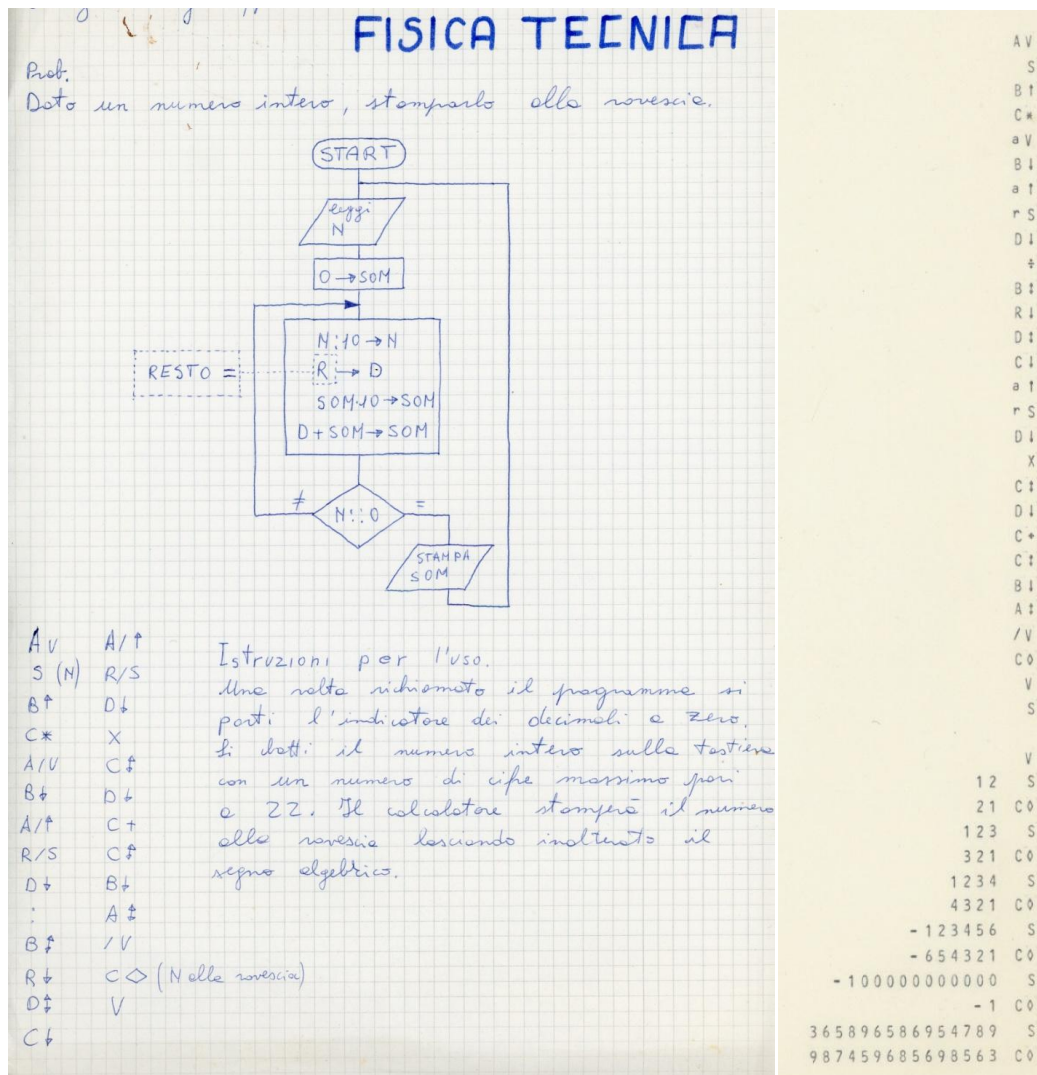 FISICA TECNICA
Prob.
Dato un numero intero, stamparlo alla rovescia.
START
leggi
N
0→SOM
N:10→N
RESTO = R → D
SOM·10→SOM
D+SOM→SOM
≠ N::0 =
STAMPA
SOM
A V
S (N)
B↑
C*
A/V
B↓
A/↑
R/S
D↓
:
B↕
R↓
D↕
C↓
A/↑
R/S
D↓
X
C↕
D↓
C+
C↕
B↓
A↕
/V
C◇ (N alla rovescia)
V
Istruzioni per l'uso.
Una volta richiamato il programma si
porti l'indicatore dei decimali a zero.
Si batti il numero intero sulla tastiera
con un numero di cifre massimo pari
a 22. Il calcolatore stamperà il numero
alla rovescia lasciando inalterato il
segno algebrico.
AV
S
B↑
C*
aV
B↓
a↑
rS
D↓
÷
B↕
R↓
D↕
C↓
a↑
rS
D↓
X
C↕
D↓
C+
C↕
B↓
A↕
/V
C◊
V
S
V
12 S
21 C◊
123 S
321 C◊
1234 S
4321 C◊
-123456 S
-654321 C◊
-100000000000 S
-1 C◊
365896586954789 S
987459685698563 C◊